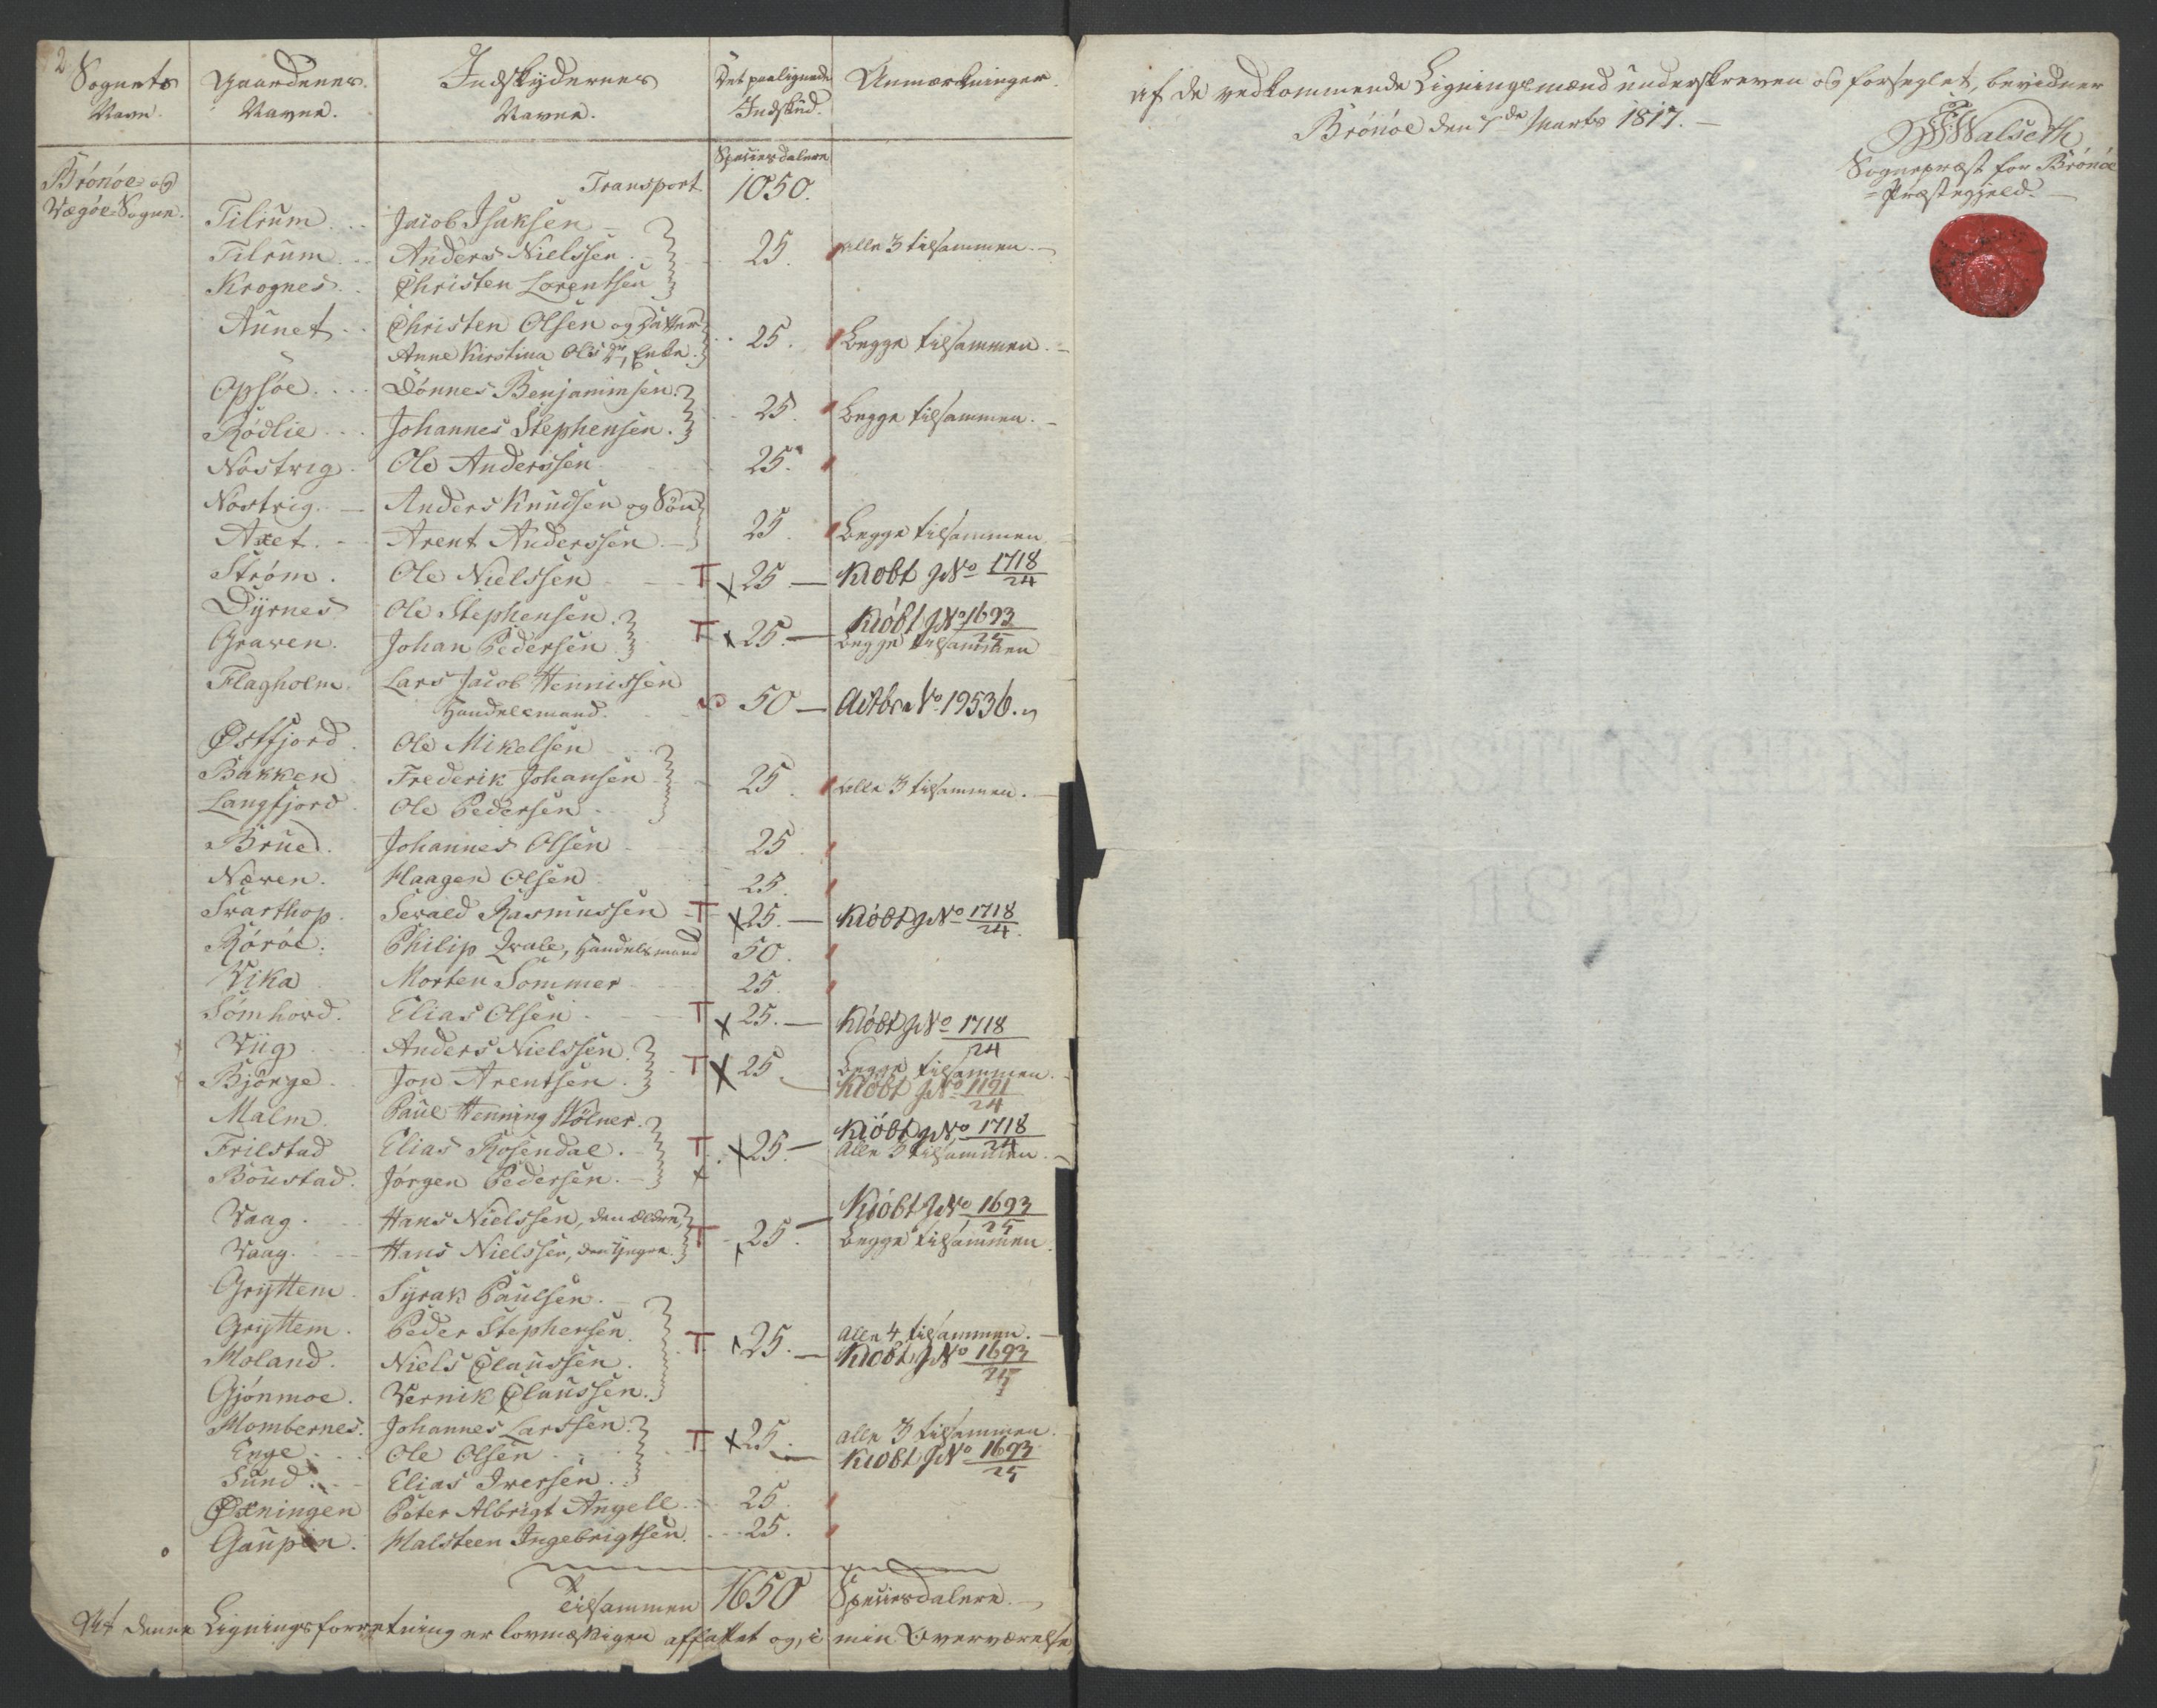 2
Sognets Navn. | Gaardenes Navne. | Indskydernes Navne. | Det paalignede Indskud. | Anmærkninger.
Speciesdalere
Brönöe og Vægöe Sogne.
Transport 1050.
Tilrum . . Jacob Isaksen
Tilrum . . Anders Nielssen . 25. alle 3 tilsammen.
Krognes . . Christen Lorentsen
Aunet . . Christen Olsen og Datter
Anne Kirstina Ols dr, Enke. 25. begge tilsammen.
Opsöe . . . Dönnes Benjaminsen.
Rödlie . . . Johannes Stephensen. 25. begge tilsammen.
Nöstvig . Ole Anderssen 25.
Nöstvig. Anders Knudsen og Sön
Axet. Arent Anderssen 25. begge tilsammen
Ström. Ole Nielssen T x 25. — Kiöbt J No 1718/24
Dyrnes Ole Stephensen. Kiöbt J No 1693/25
Graven. Johan Pedersen T x 25. — begge tilsammen
Flagholm. Lars Jacob Hennissen
Handelsmand. 50 — Actbr No 19536.
Østfjord. Ole Mikelsen
Bakken Frederik Johansen 25. alle 3 tilsammen.
Langfjord. Ole Pedersen
Brued. Johannes Olsen 25.
Næven. Haagen Olsen 25.
Svarthop. Sevald Rasmussen T x 25. — Kiöbt J No 1718/24.
Röröe. Philip Qvale, Handelsmand 50.
Vika Morten Sommer 25.
Sömhovd. Elias Olsen T x 25. — Kiöbt J No 1718/24
x Viig Anders Nielssen. T x 25 begge tilsammen.
x Bjørge. Jon Arentsen. Kiöbt J No 1191/24
Malm. Paul Henning Wölner. Kiöbt J No 1718/24
Frilstad Elias Rosendal. T x 25. — Alle 3 tilsammen.
Böustad. Jørgen Pedersen. x
Vaag. Hans Nielssen, den ældre, Kiöbt J No 1693/25
Vaag. Hans Nielssen, den Yngre. T 25. begge tilsammen.
Gryttem. Syrak Paulsen.
Gryttem. Peder Stephensen. T x 25. alle 4 tilsammen.
Moland. Niels Claussen. — Kiöbt J No 1693/25
Gjönmoe. Vernik Claussen.
Mombernes. Johannes Larssen. T x 25. alle 3 tilsammen.
Enge Ole Olsen Kiöbt J No 1693/25
Sund. Elias Iversen.
Øxningen Peter Albrigt Angell 25.
Gaupen. Halsteen Ingebrigtsen. 25.
Tilsammen 1650 Speciesdalere.
At denne Ligningsforretning er lovmæssigen affattet og, i min Overværelse
af de vedkommende Ligningsmænd underskreven og forseglet, bevidner
Brönöe den 7de Marts 1817.
Walseth
Sognepræst for Brönöe
Præstegjeld.